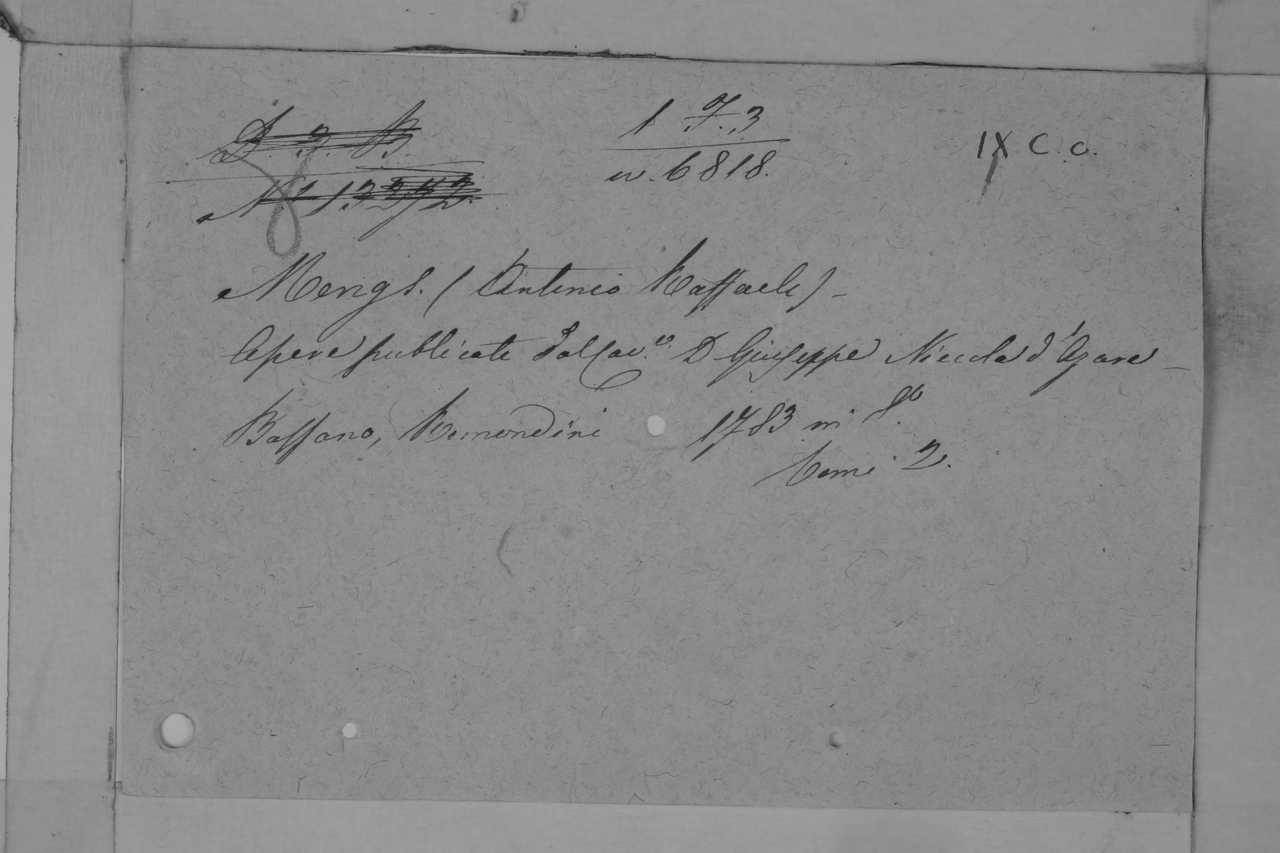 D. 3. B.
1 F. 3
IX C. o.
N. 13272.
n. 6818.
Mengs. (Antonio Raffaele) -
Opere publicate dal Cav.e D Giuseppe Niccola d'Azara -
Bassano, Remondini 1783 in 8o.
tomi 2.